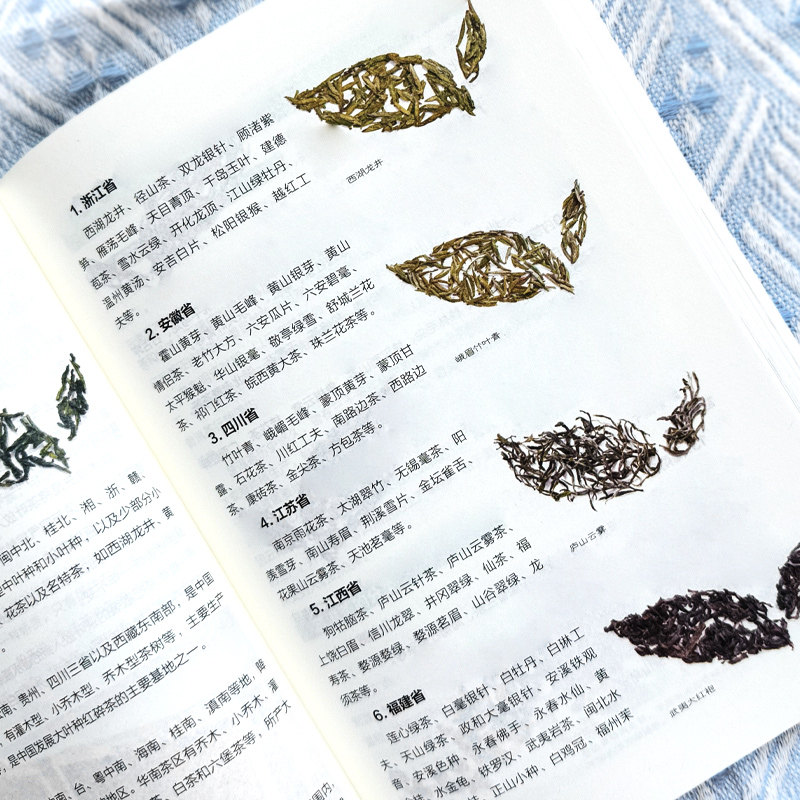 闽中北、桂北、湘、浙、赣、
中叶种和小叶种，以及少部分小
花茶以及名特茶，如西湖龙井、黄
南、贵州、四川三省以及西藏东南部，是中国
有灌木型、小乔木型、乔木型茶树等，主要生产
是中国发展大叶种红碎茶的主要基地之一。
南、台、粤中南、海南、桂南、滇南等地，
地区。华南茶区有乔木、小乔木、灌
白茶和六堡茶等，所产大
1. 浙江省
西湖龙井、径山茶、双龙银针、顾渚紫
笋、雁荡毛峰、天目青顶、千岛玉叶、建德
苞茶、雪水云绿、开化龙顶、江山绿牡丹、
温州黄汤、安吉白片、松阳银猴、越红工
夫等。
2. 安徽省
霍山黄芽、黄山毛峰、黄山银芽、黄山
情侣茶、老竹大方、六安瓜片、六安碧毫、
太平猴魁、华山银毫、敬亭绿雪、舒城兰花
茶、祁门红茶、皖西黄大茶、珠兰花茶等。
3. 四川省
竹叶青、峨嵋毛峰、蒙顶黄芽、蒙顶甘
露、石花茶、川红工夫、南路边茶、西路边
茶、康砖茶、金尖茶、方包茶等。
4. 江苏省
南京雨花茶、太湖翠竹、无锡毫茶、阳
羡雪芽、南山寿眉、荆溪雪片、金坛雀舌、
花果山云雾茶、天池茗毫等。
5. 江西省
狗牯脑茶、庐山云针茶、庐山云雾茶、
上饶白眉、信川龙翠、井冈翠绿、仙茶、福
寿茶、婺源婺绿、婺源茗眉、山谷翠绿、龙
须茶等。
6. 福建省
莲心绿茶、白毫银针、白牡丹、白琳工
夫、天山绿茶、政和大毫银针、安溪铁观
音、安溪色种、永春佛手、永春水仙、黄
桂、水金龟、铁罗汉、武夷岩茶、闽北水
正山小种、白鸡冠、福州茉
西湖龙井
峨眉竹叶青
庐山云雾
武夷大红袍